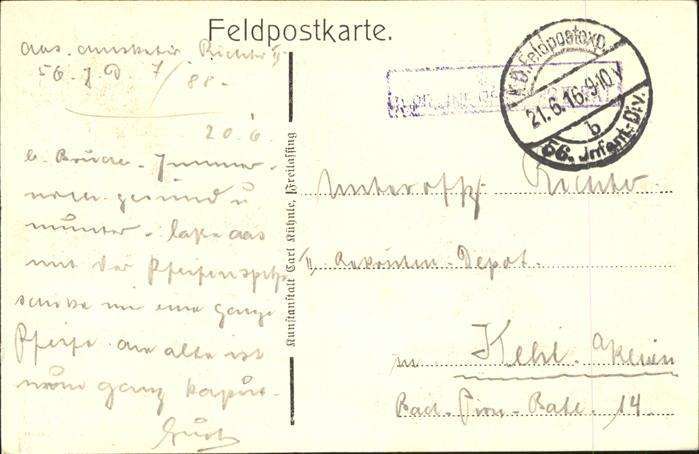 Feldpostkarte.
Richter II
56. J. D. 7/88.
20.6
l. Bruder. Immer
noch gesund u
munter. lasse das
mit der Pfeifenspitze
schicke mir eine ganze
Pfeife. die alte ist
ganz kaput.
Gust
Kunstanstalt Carl Kühnle, Freilassing
K.D. Feldpostexp.
21.6.16.9-10V
b
56. Infant.-Div.
Unteroffz. Richter
II, Rekruten-Depot.
in Kehl. a Rhein
Bad. Pion. Batl. 14.